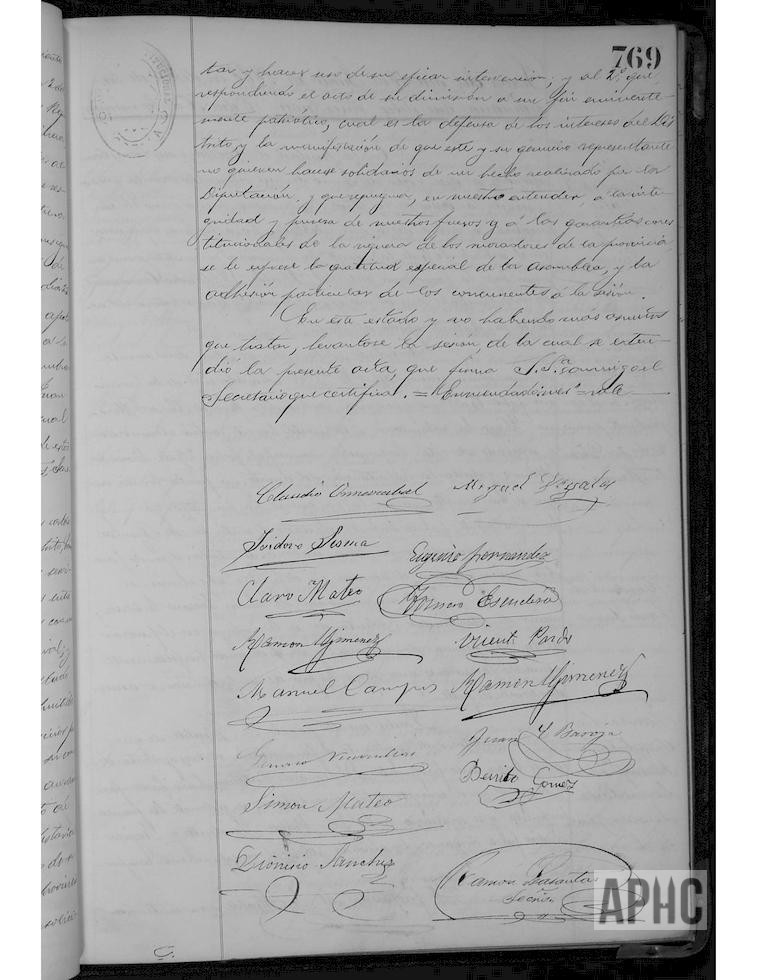 769
tar y hacer uso de su eficaz intervención; y al 2º que,
respondiendo el acto de su dimisión a un fin eminente-
mente patriótico, cual es la defensa de los intereses del Dis
trito, y la manifestación de que este y su genuino representante
no quieren hacerse solidarios de un hecho realizado por la
Diputación, y que repugna, en nuestro entender, a la inte-
gridad y pureza de nuestros fueros y á las garantías cons
titucionales de la riqueza de los moradores de la provincia
se le exprese la gratitud especial de la Asamblea, y la
adhesión particular de los concurrentes á la sesión.
En este estado y no habiendo más asuntos
que tratar, levantose la sesión, de la cual se exten-
dió la presente acta, que firma S. Sª conmigo el
Secretario que certifica. = Enmendado = vale
Claudio Miguel
Isidoro Eugenio Fernandez
Claro Mateo Escudero
Ramon Gimenez Vicente Pardo
Manuel Campos Ramon Gimenez
Juan Baroja
Benito Gomez
Simon Mateo
Dionisio Sanchez
Ramon Basanta
Secrio
APHC